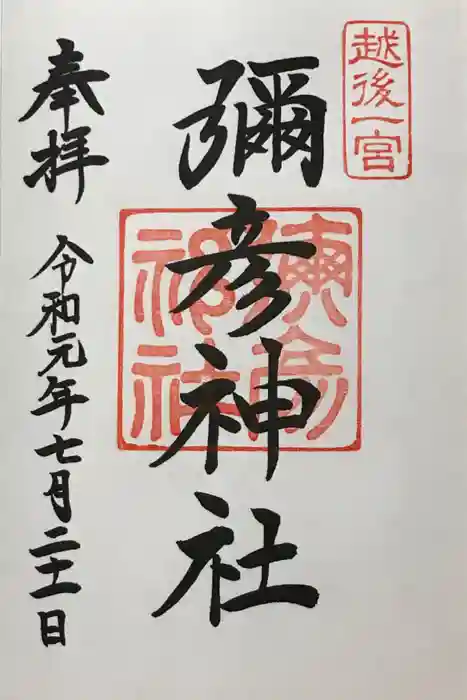 越後一宮
彌彦神社
彌彦神社
奉拝
令和元年七月二十一日